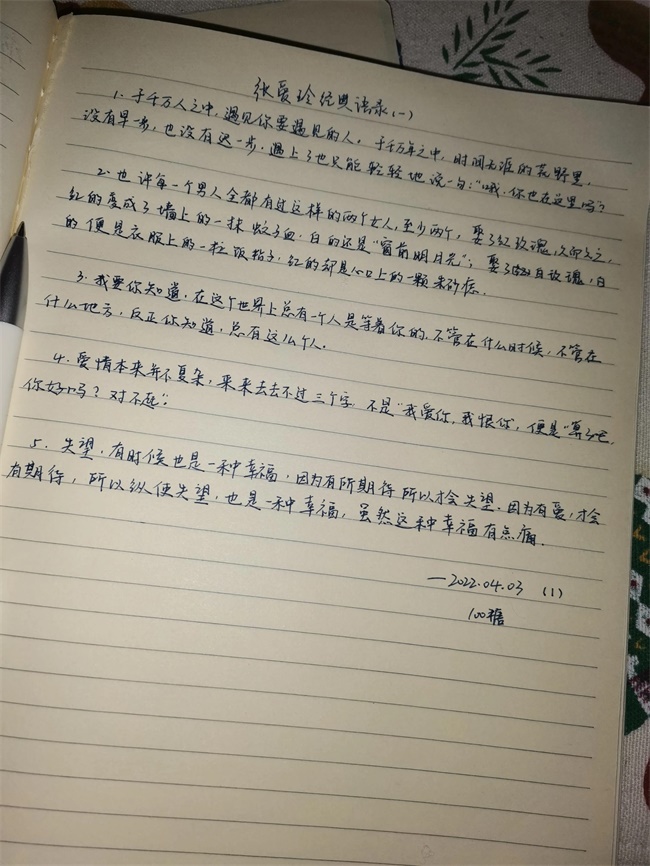 张爱玲经典语录(一)
1. 于千万人之中,遇见你要遇见的人。于千万年之中,时间无涯的荒野里,
没有早一步,也没有迟一步,遇上了也只能轻轻地说一句:“哦,你也在这里吗?
2. 也许每一个男人全都有过这样的两个女人,至少两个,娶了红玫瑰,久而久之,
红的变成了墙上的一抹蚊子血,白的还是“窗前明月光”;娶了白玫瑰,白
的便是衣服上的一粒饭粘子,红的却是心口上的一颗朱砂痣.
3. 我要你知道,在这个世界上总有一个人是等着你的,不管在什么时候,不管在
什么地方,反正你知道,总有这么个人.
4. 爱情本来并不复杂,来来去去不过三个字,不是“我爱你,我恨你”,便是“算了吧,
你好吗?对不起”.
5. 失望,有时候也是一种幸福,因为有所期待所以才会失望.因为有爱,才会
有期待,所以纵使失望,也是一种幸福,虽然这种幸福有点痛.
—2022.04.03 (1)
100糖